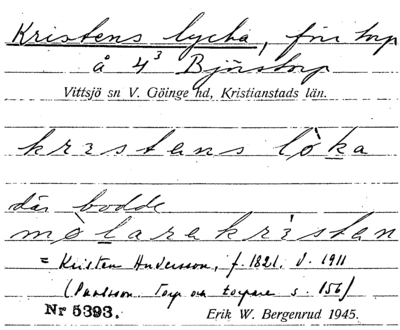 Kristens lycka, förr torp
å 4³ Bjärstorp
Vittsjö sn V. Göinge hd, Kristianstads län.
kristens lòka
där bodde
mòlarakristen
= Kristen Andersson, f. 1821, d. 1911
(Paulsson Torp och torpare s. 156)
Nr 5393. Erik W. Bergenrud 1945.